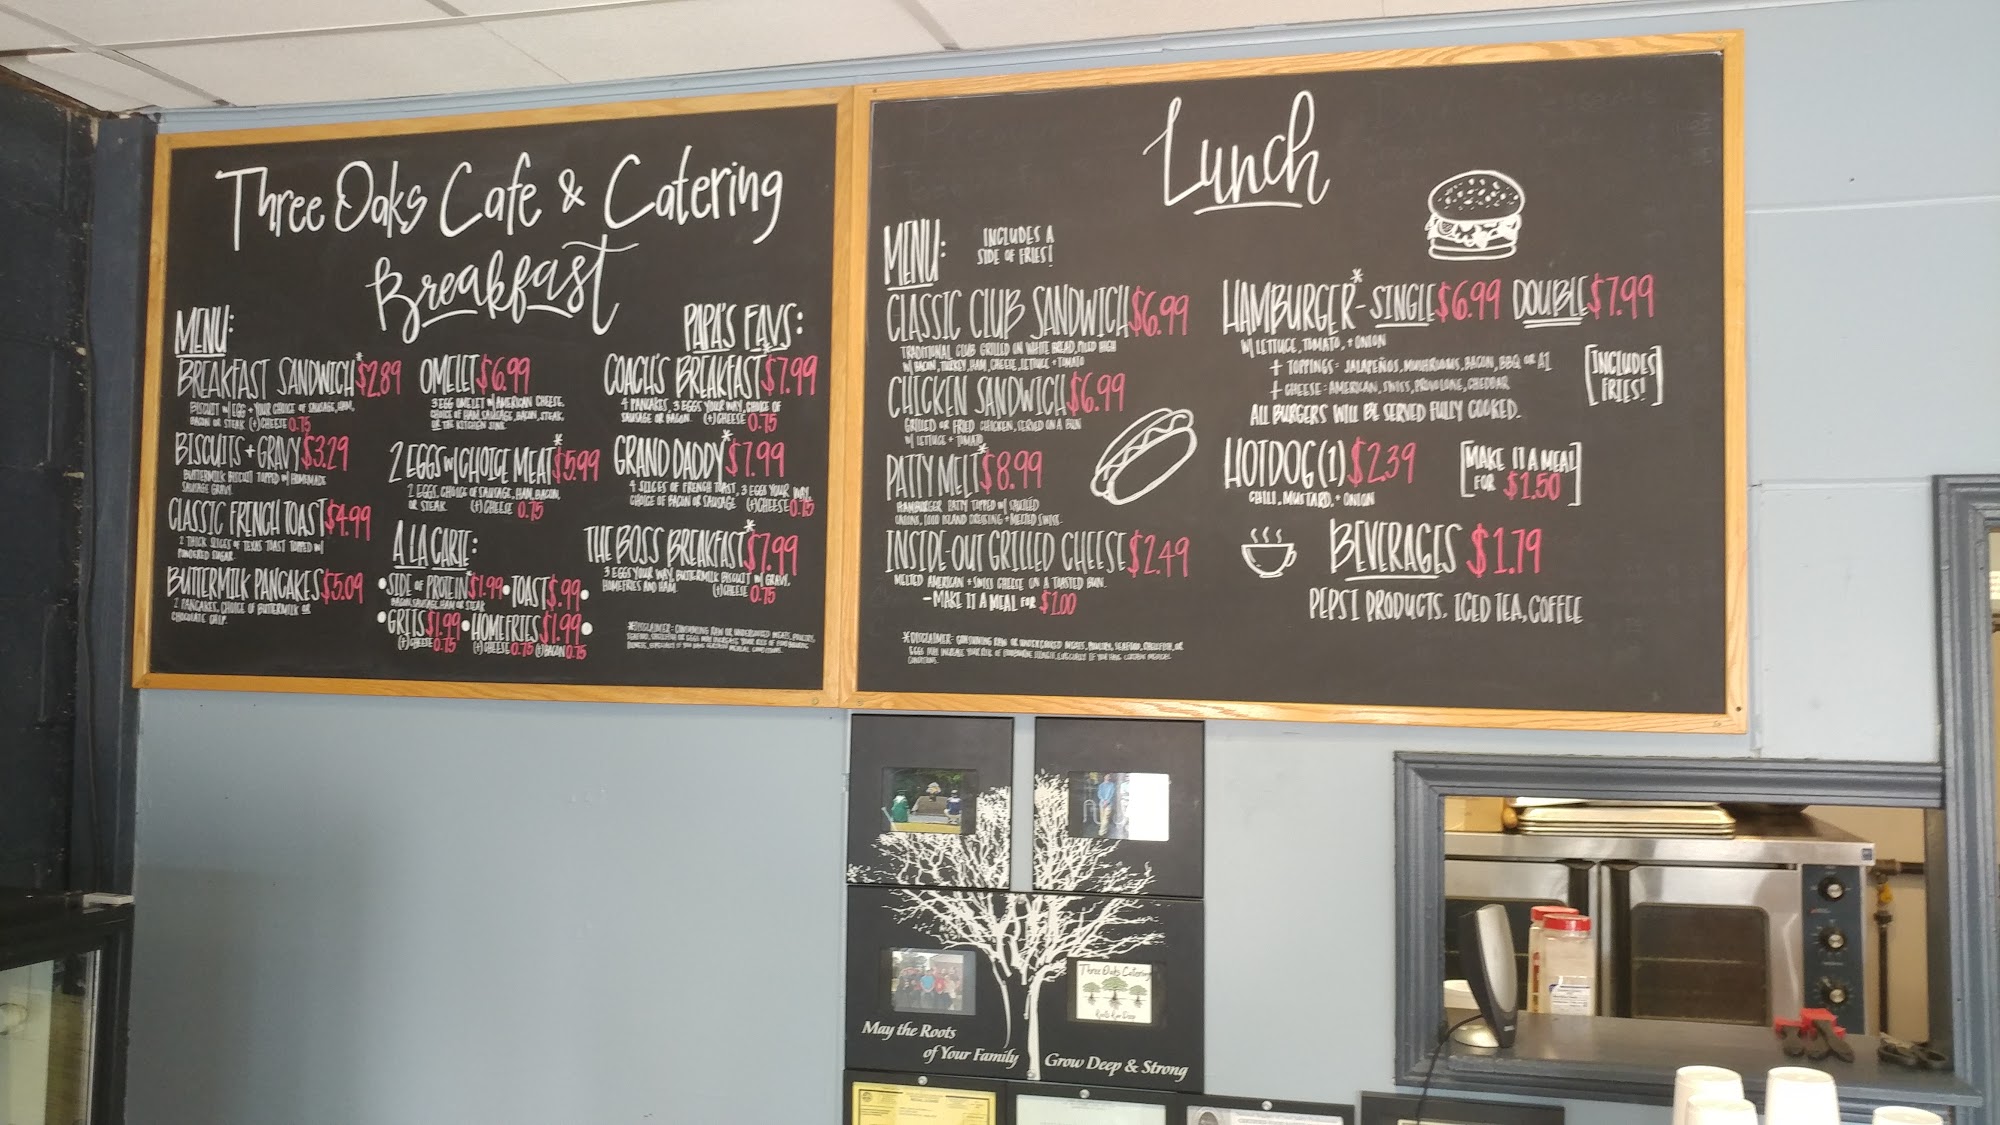 Three Oaks Cafe & Catering
Breakfast
MENU:
BREAKFAST SANDWICH* $2.89
BISCUIT W/ EGG + YOUR CHOICE OF SAUSAGE, HAM,
BACON OR STEAK (+) CHEESE 0.75
BISCUITS + GRAVY $3.29
BUTTERMILK BISCUIT TOPPED W/ HOMEMADE
SAUSAGE GRAVY.
CLASSIC FRENCH TOAST $4.99
2 THICK SLICES OF TEXAS TOAST TOPPED W/
POWDERED SUGAR.
BUTTERMILK PANCAKES $5.09
2 PANCAKES, CHOICE OF BUTTERMILK OR
CHOCOLATE CHIP.
OMELET $6.99
3 EGG OMELET W/ AMERICAN CHEESE,
CHOICE OF HAM, SAUSAGE, BACON, STEAK,
OR THE KITCHEN SINK.
2 EGGS W/ CHOICE MEAT* $5.99
2 EGGS, CHOICE OF SAUSAGE, HAM, BACON,
OR STEAK. (+) CHEESE 0.75
A LA CARTE:
• SIDE OF PROTEIN* $1.99 • TOAST $.99 •
BACON, SAUSAGE, HAM OR STEAK
• GRITS $1.99 • HOMEFRIES $1.99 •
(+) CHEESE 0.75 (+) CHEESE 0.75 (+) BACON 0.75
PAPA'S FAVS:
COACH'S BREAKFAST* $7.99
4 PANCAKES, 3 EGGS YOUR WAY, CHOICE OF
SAUSAGE OR BACON. (+) CHEESE 0.75
GRAND DADDY* $7.99
4 SLICES OF FRENCH TOAST, 3 EGGS YOUR WAY,
CHOICE OF BACON OR SAUSAGE (+) CHEESE 0.75
THE BOSS BREAKFAST* $7.99
3 EGGS YOUR WAY, BUTTERMILK BISCUIT W/ GRAVY,
HOMEFRIES AND HAM. (+) CHEESE 0.75
*DISCLAIMER: CONSUMING RAW OR UNDERCOOKED MEATS, POULTRY,
SEAFOOD, SHELLFISH OR EGGS MAY INCREASE YOUR RISK OF FOODBORNE
ILLNESS, ESPECIALLY IF YOU HAVE CERTAIN MEDICAL CONDITIONS.
Lunch
MENU:
INCLUDES A
SIDE OF FRIES!
CLASSIC CLUB SANDWICH $6.99
TRADITIONAL CLUB GRILLED ON WHITE BREAD, PILED HIGH
W/ BACON, TURKEY, HAM, CHEESE, LETTUCE + TOMATO
CHICKEN SANDWICH $6.99
GRILLED OR FRIED CHICKEN, SERVED ON A BUN
W/ LETTUCE + TOMATO
PATTY MELT* $8.99
HAMBURGER PATTY TOPPED W/ SAUTÉED
ONIONS, 1000 ISLAND DRESSING + MELTED SWISS.
INSIDE-OUT GRILLED CHEESE $2.49
MELTED AMERICAN + SWISS CHEESE ON A TOASTED BUN.
- MAKE IT A MEAL FOR $2.00
*DISCLAIMER: CONSUMING RAW OR UNDERCOOKED MEATS, POULTRY, SEAFOOD, SHELLFISH, OR
EGGS MAY INCREASE YOUR RISK OF FOODBORNE ILLNESS, ESPECIALLY IF YOU HAVE CERTAIN MEDICAL
CONDITIONS.
HAMBURGER* - SINGLE $6.99 DOUBLE $7.99
W/ LETTUCE, TOMATO, + ONION
+ TOPPINGS: JALAPEÑOS, MUSHROOMS, BACON, BBQ OR A1
+ CHEESE: AMERICAN, SWISS, PROVOLONE, CHEDDAR
ALL BURGERS WILL BE SERVED FULLY COOKED.
[INCLUDES
FRIES!]
HOTDOG (1) $2.39
CHILI, MUSTARD, + ONION
[MAKE IT A MEAL
FOR $1.50]
BEVERAGES $1.79
PEPSI PRODUCTS, ICED TEA, COFFEE
Three Oaks Catering
Roots Run Deep
May the Roots
of Your Family
Grow Deep & Strong